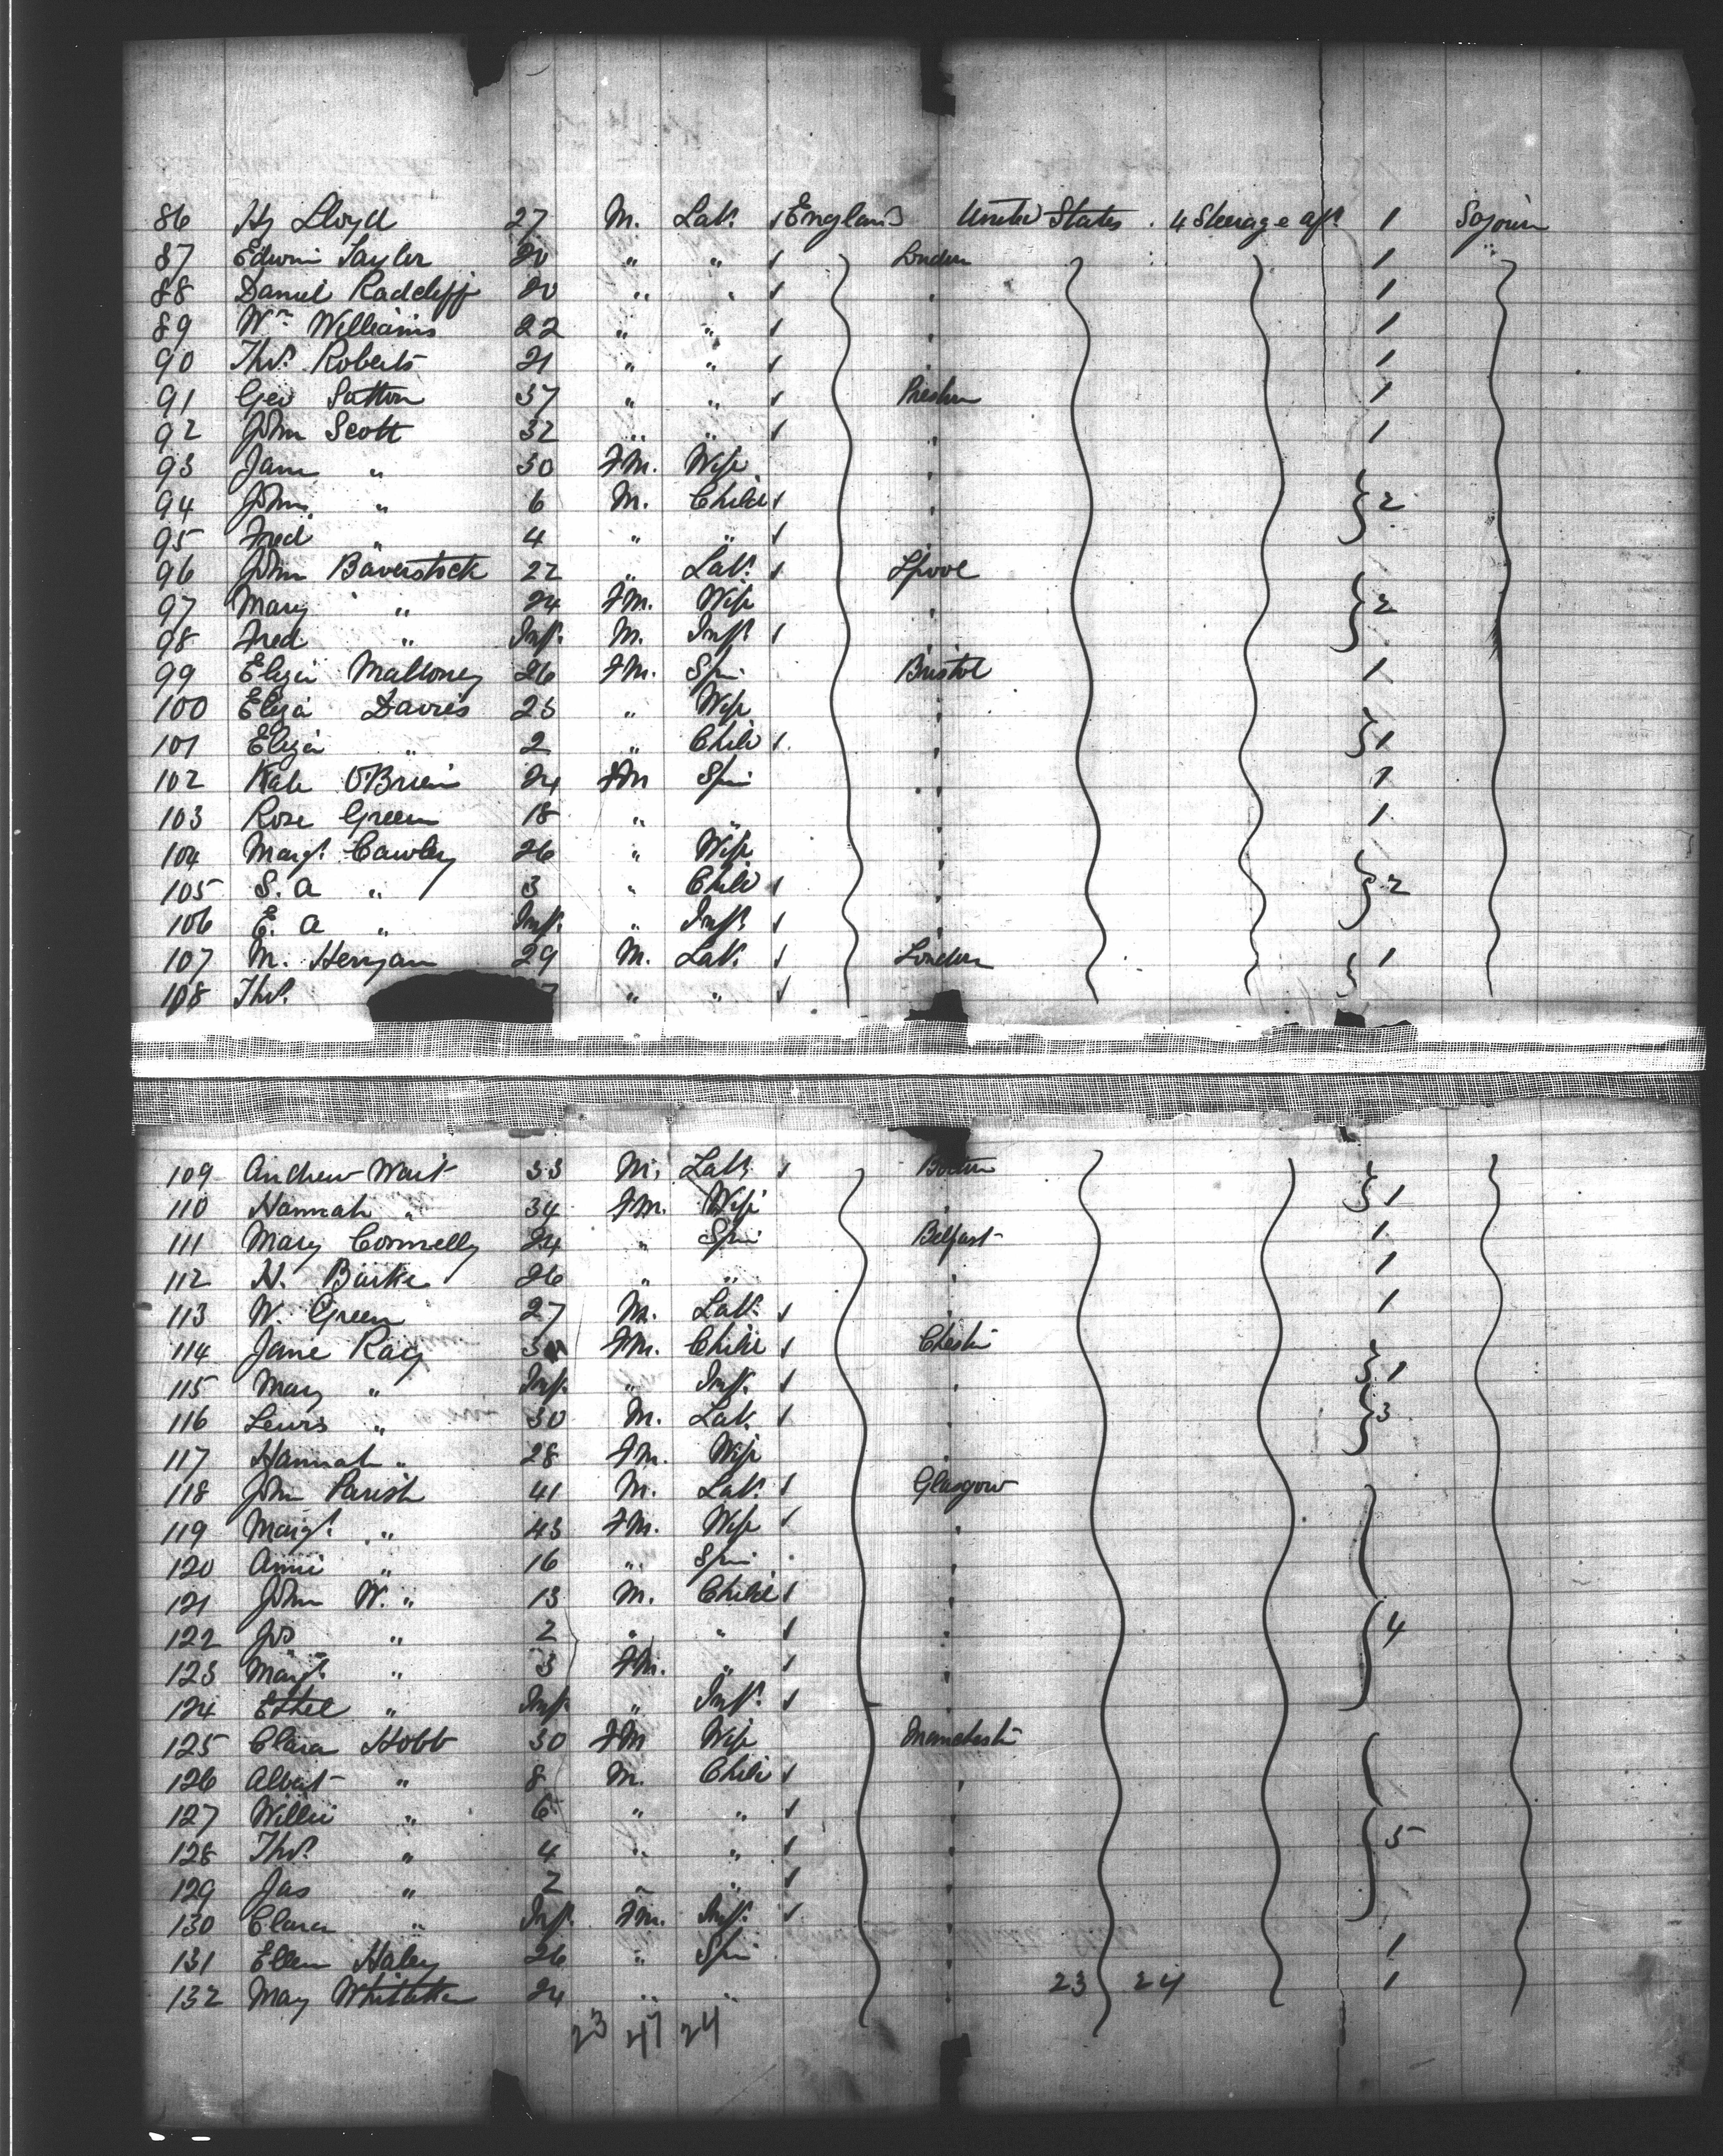 86 Hy Lloyd 27 M. Labr. England United States 4 Steerage aft 1 Sojourn
87 Edwin Taylor 20 " " London 1
88 Daniel Radcliff 20 " " " 1
89 Wm Williams 22 " " " 1
90 Thos. Roberts 21 " " " 1
91 Geo Sutton 37 " " Preston 1
92 John Scott 32 " " " 1
93 Jane " 30 FM. Wife "
94 John " 6 M. Child " 2
95 Fred " 4 " " "
96 John Baverstock 22 " Labr. Lpool
97 Mary " 24 FM. Wife " 2
98 Fred " Inft. M. Inft. "
99 Eliza Malloney 26 FM. Spin Bristol 1
100 Eliza Davies 23 " Wife "
101 Eliza " 2 " Child " 1
102 Kate O'Brien 24 FM Spin " 1
103 Rose Green 18 " " " 1
104 Margt. Cawley 26 " Wife "
105 S. A " 3 " Child " 2
106 E. A " Inft. " Inft. "
107 M. 29 M. Labr. London 1
108 Thos. " "
109 Andrew Wait 33 M. Labr.
110 Hannah " 34 FM. Wife " 1
111 Mary Connelly 24 " Spin Belfast 1
112 H. Burke 26 " " " 1
113 W. Green 27 M. Labr. " 1
114 Jane Ray FM. Child Chester
115 Mary " Inft. " Inft. " 1
116 Lewis " 30 M. Labr. " 3
117 Hannah " 28 FM. Wife "
118 John Parish 41 M. Labr. Glasgow
119 Margt. " 43 FM. Wife "
120 Annie " 16 " Spin "
121 John W. " 13 M. Child "
122 Jos " 2 " " " 4
123 Margt. " 3 FM. " "
124 Ethel " Inft. " Inft. "
125 Clara Hobb 30 FM Wife Manchester
126 Albert " 8 M. Child "
127 Willie " 6 " " "
128 Thos. " 4 " " " 5
129 Jas " 2 " " "
130 Clara " Inft. FM. Inft. "
131 Ellen Haley 26 " Spin " 1
132 May Whittaker 24 " " " 23 24 1
23 47 24